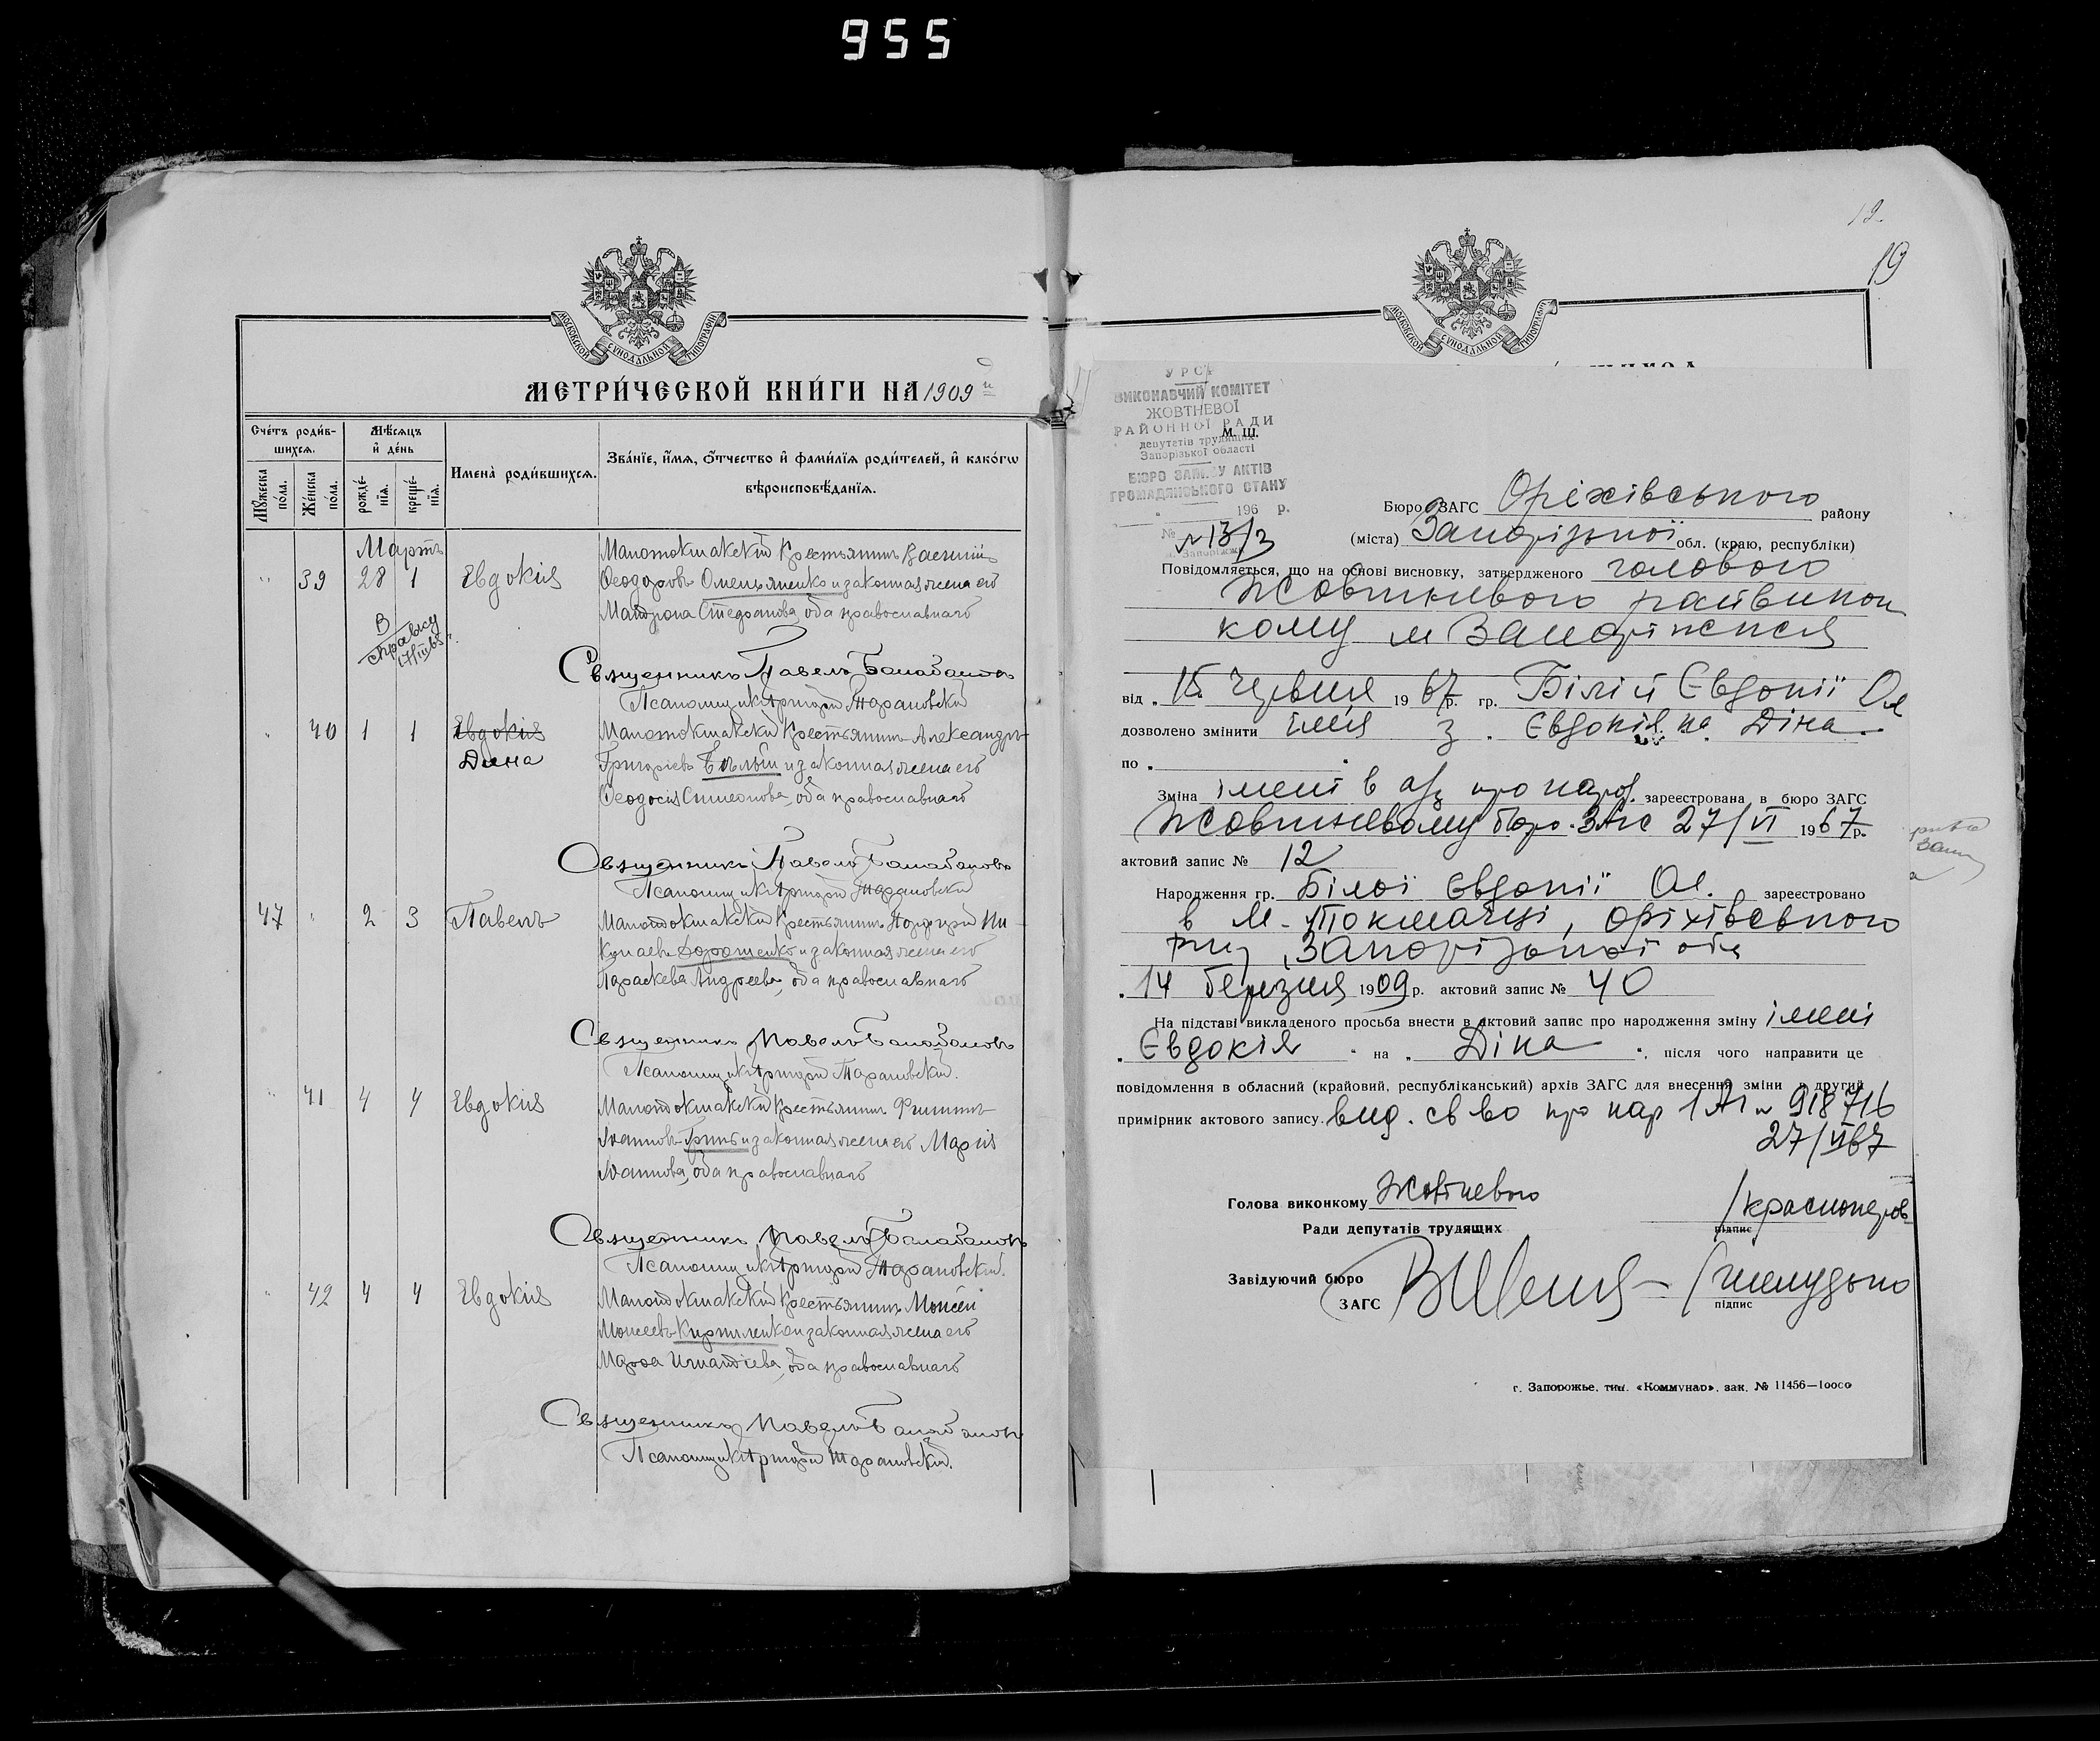 955
МОСКОВСКОЙ СѴНОДАЛЬНОЙ ТИПОГРАФІИ
МЕТРИ́ЧЕСКОЙ КНИ́ГИ НА 1909
Сче́тъ роди́в-
шихсѧ.
Мѣ́сѧцъ
и҆ де́нь
Мꙋ́жеска по́ла.
Же́нска по́ла.
рожде́-
нїѧ.
креще́-
нїѧ.
Имена̀ роди́вшихсѧ.
Зва́нїе, и҆́мѧ, ѻ҆́тчество и҆ фами́лїѧ роди́телей, и҆ како́гѡ
вѣроисповѣ́данїѧ.
Мартъ
39 28 1 Евдокія
Малотокмакскій Крестьянинъ Василій
Ѳеодоровъ Омельяненко и законная жена его
Матрона Стефанова, оба православнаго
В
справку
17/III 65
Священникъ Павелъ Балабановъ
Псаломщикъ Григорій Тарановскій
40 1 1 Евдокія
Дина
Малотокмакскій Крестьянинъ Александръ
Григоріевъ Бѣлый и законная жена его
Ѳеодосія Симеонова, оба православнаго
Священникъ Павелъ Балабановъ
Псаломщикъ Григорій Тарановскій
47 2 3 Павелъ
Малотокмакскій Крестьянинъ Ни-
колаевъ Дорошенко и законная жена его
Параскева Андреева, оба православнаго
Священникъ Павелъ Балабановъ
Псаломщикъ Григорій Тарановскій.
41 4 4 Евдокія
Малотокмакскій Крестьянинъ Филиппъ
Іоанновъ и законная жена его Марія
Іоаннова, оба православнаго
Священникъ Павелъ Балабановъ
Псаломщикъ Григорій Тарановскій.
42 4 4 Евдокія
Малотокмакскій Крестьянинъ Моисей
Моисеевъ Кириленко и законная жена его
Марѳа Игнатіева, оба православнаго
Священникъ Павелъ Балабановъ
Псаломщикъ Григорій Тарановскій.
12.
19
МОСКОВСКОЙ СѴНОДАЛЬНОЙ ТИПОГРАФІИ
УРСР
ВИКОНАВЧИЙ КОМІТЕТ
ЖОВТНЕВОЇ
РАЙОННОЇ РАДИ
депутатів трудящих
Запорізької області
М. Ш.
БЮРО ЗАПИСУ АКТІВ
ГРОМАДЯНСЬКОГО СТАНУ
196 р.
№ 13/3
м. Запоріжжя
Бюро ЗАГС Оріхівського району
(міста) Запорізької обл. (краю, республіки)
Повідомляється, що на основі висновку, затвердженого головою
Жовтневого райвикон
кому м Запоріжжя
від „ 15 червня 1967р. гр. Білій Євдокії Ол
дозволено змінити імя з „ Євдокія на Діна
по „
Зміна імені в а/з про народ. зареєстрована в бюро ЗАГС
Жовтневому бюро ЗАГС 27/VI 1967р.
актовий запис № 12
Народження гр. Білої Євдокії Ол. зареєстровано
в М-Токмачці, оріхівського
р-ну, Запорізької обл
„ 14 березня 1909р. актовий запис № 40
На підставі викладеного просьба внести в актовий запис про народження зміну імені
„ Євдокія “ на „ Діна “, після чого направити це
повідомлення в обласний (крайовий, республіканський) архів ЗАГС для внесення зміни в другий
примірник актового запису. вид. св во про нар 1 АГ № 918716
27/VI 67
Голова виконкому Жовтневого
Ради депутатів трудящих
підпис
Завідуючий бюро
ЗАГС
підпис
г. Запорожье, тип. «Коммунар», зак. № 11456—10000